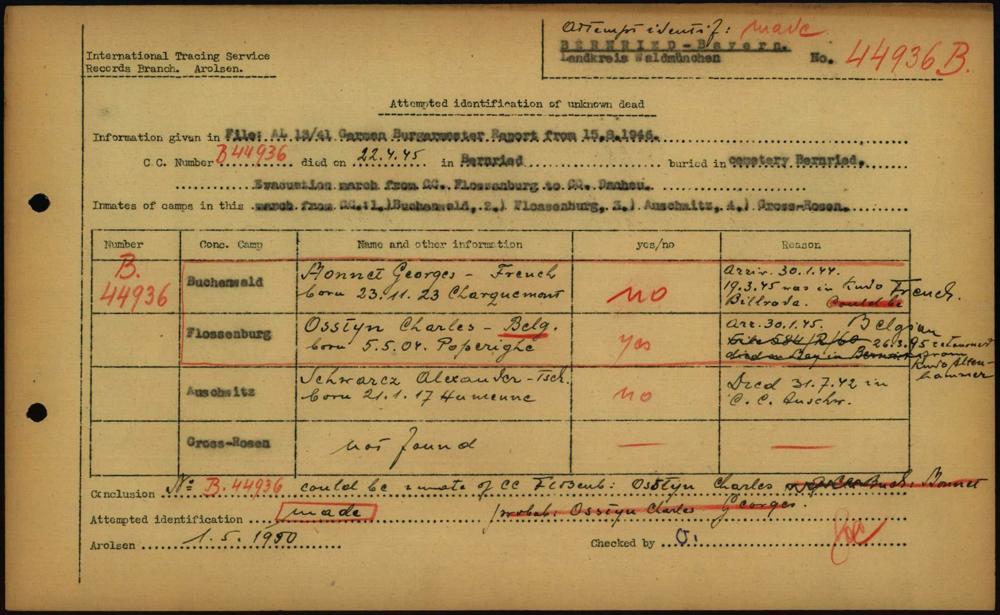 Attempt identif: made
International Tracing Service
Records Branch. Arolsen.
BERNRIED-Bayern.
Landkreis Waldmünchen
No. 44936 B.
Attempted identification of unknown dead
Information given in File: AL 13/41 German Burgarmester Report from 15.8.1946.
C.C. Number B 44936 died on 22.4.45 in Bernried buried in cemetery Bernried.
Evacuation march from CC. Flossenburg to CC. Dachau.
Inmates of camps in this march from CC.:1.)Buchenwald, 2.) Flossenburg, 3.) Auschwitz, 4.) Gross-Rosen.
Number Conc. Camp Name and other information yes/no Reason
B. 44936
Buchenwald
Monnet Georges - French
born 23.11.23 Charquemont
no
Arriv. 30.1.44.
19.3.45 was in Kmdo French.
Billroda. Could be
Flossenburg
Osstyn Charles - Belg.
born 5.5.04. Poperighe
yes
Arr. 30.1.45. Belgian
26.3.45 returned
from
Kmdo Alten
hammer
Auschwitz
Schwarcz Alexander - Tsch.
born 21.1.17 Humenne
no
Died 31.7.42 in
C.C. Auschw.
Gross-Rosen
not found
Conclusion No B. 44936 could be inmate of CC Flossenb: Osstyn Charles
Attempted identification made probab: Osstyn Charles Georges.
Arolsen 1.5.1950 Checked by